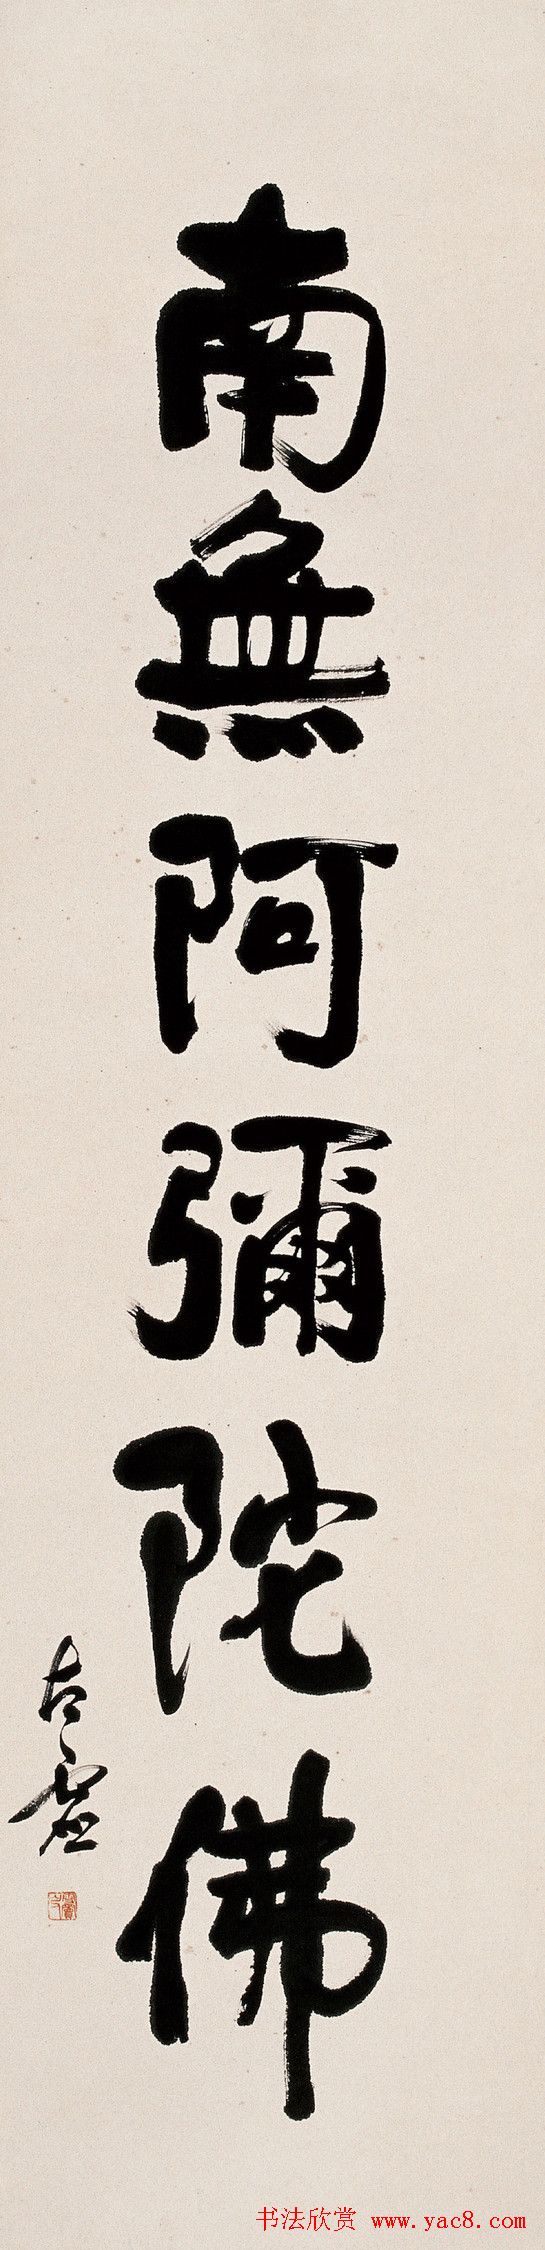 南無阿彌陀佛
古虚
书法欣赏 www.yac8.com